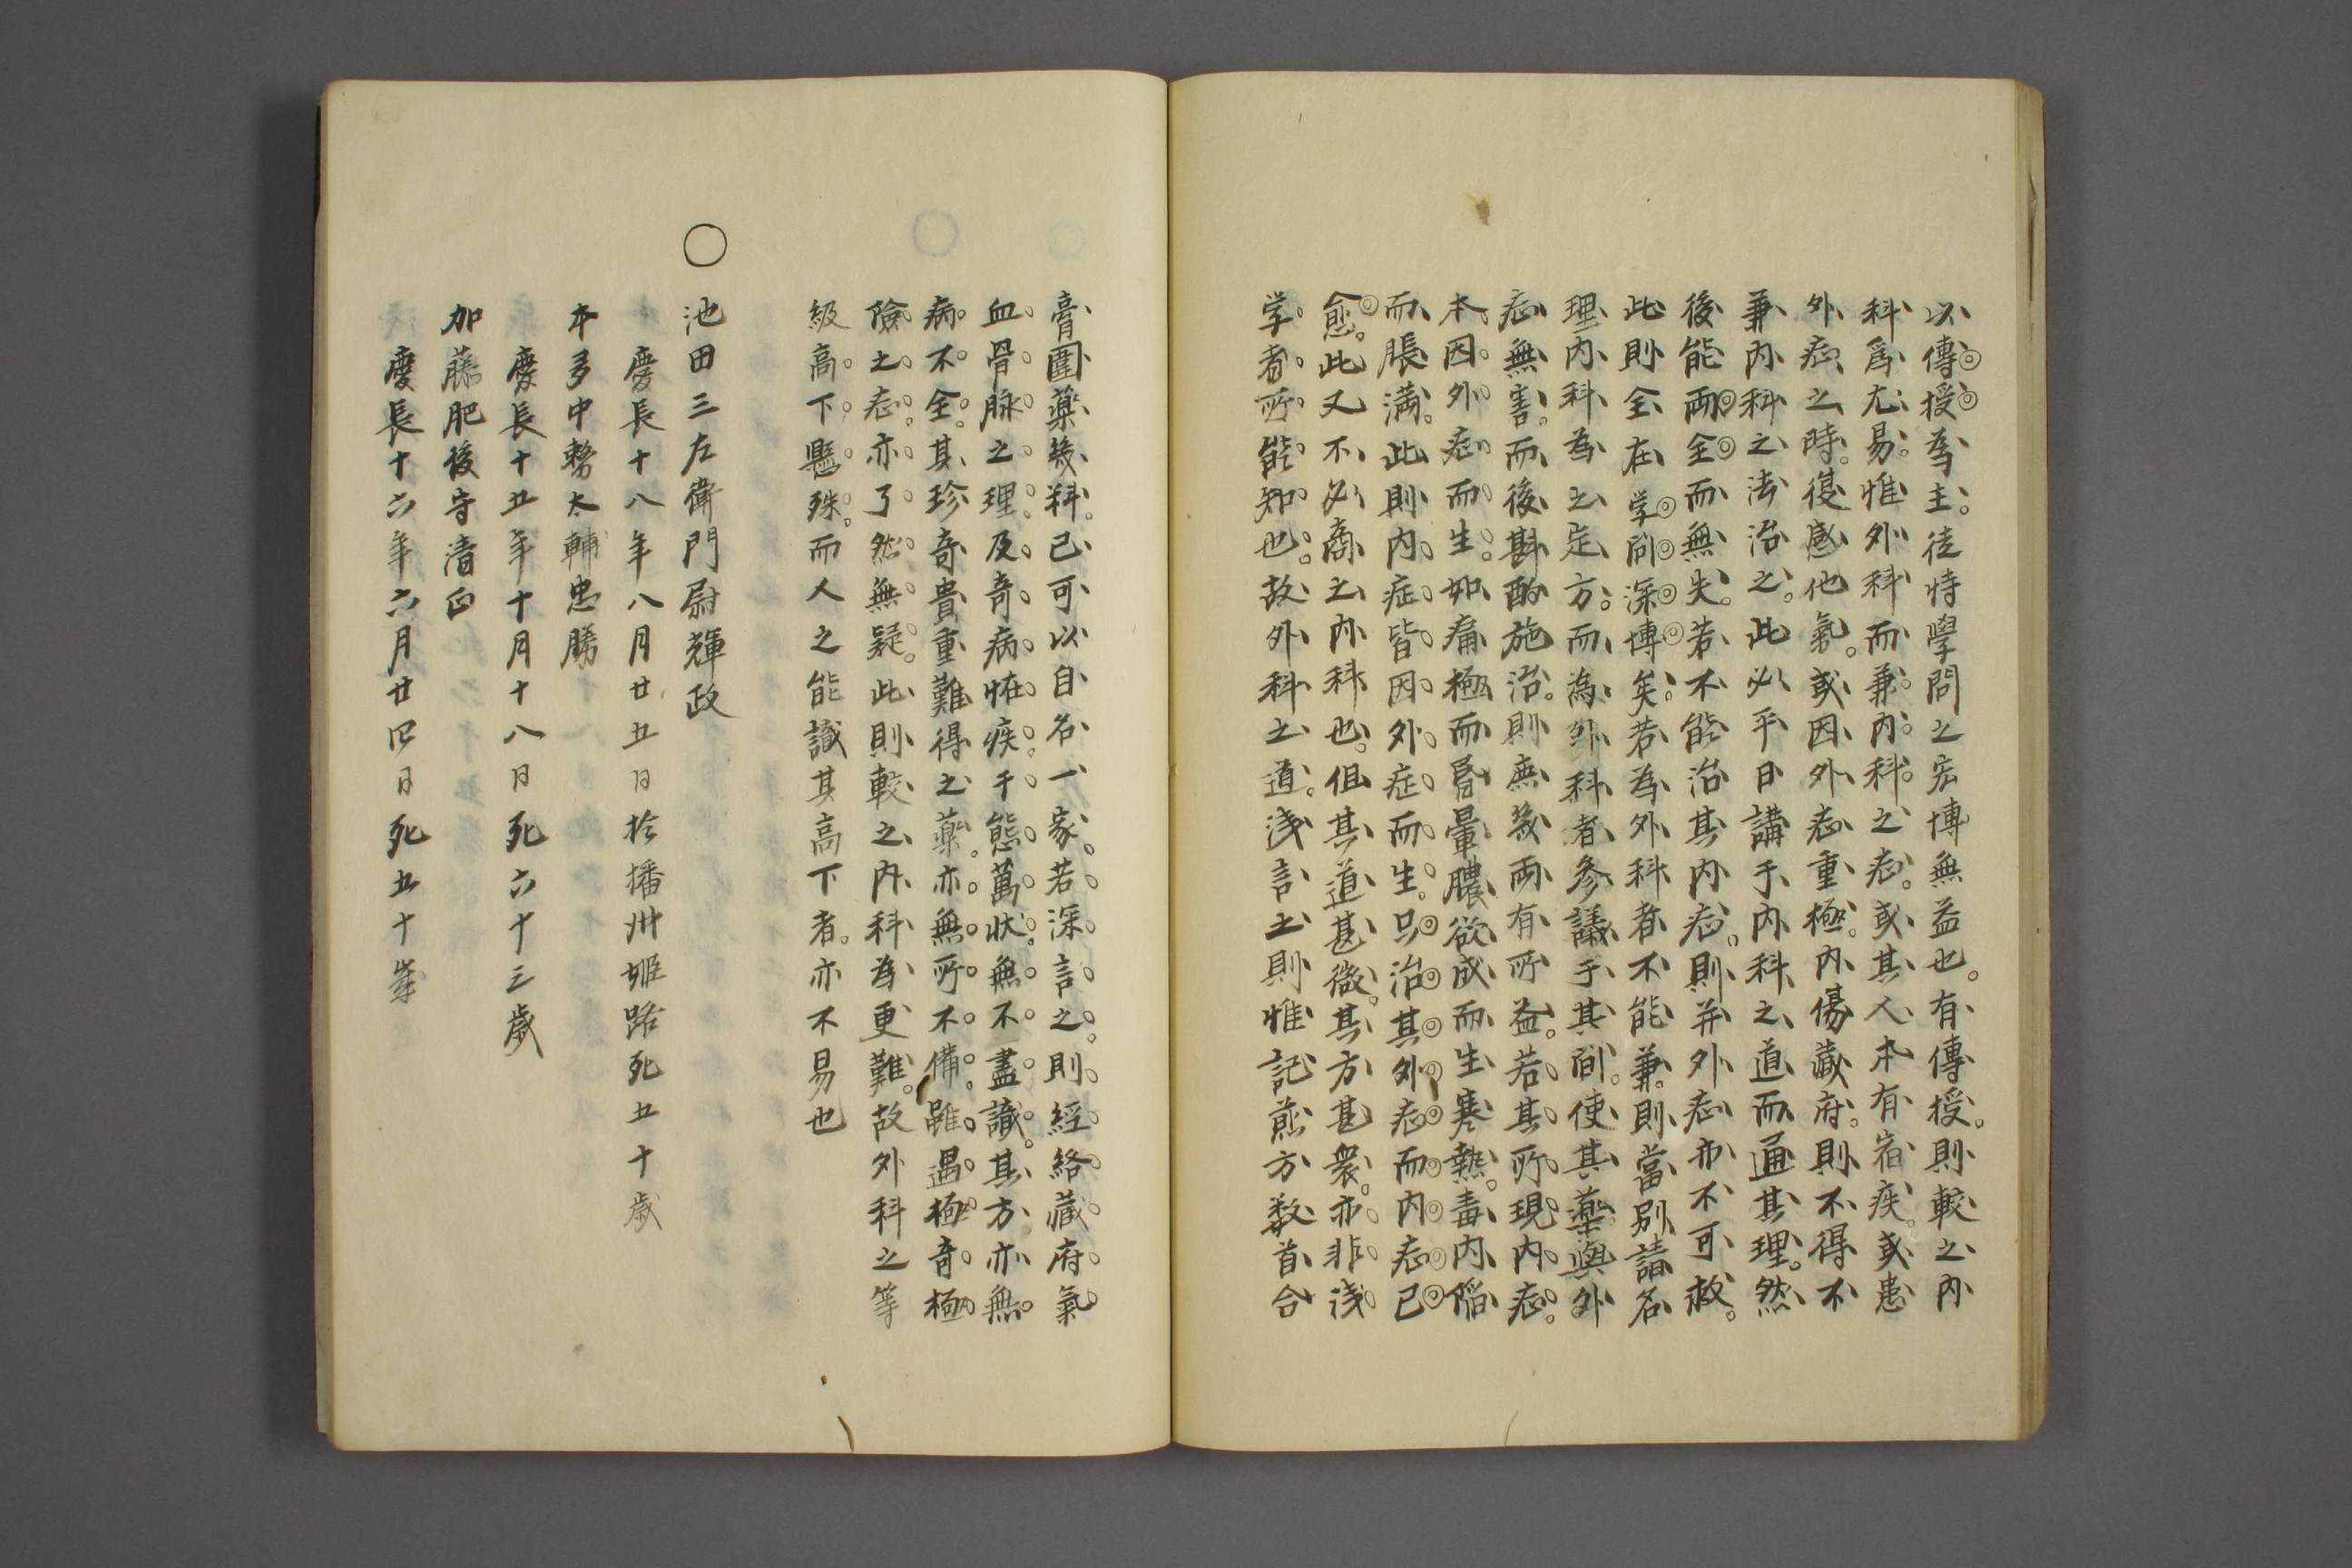 以傳授為主。徒恃學問之宏博無益也。有傳授。則較之內
科爲尤易。惟外科而兼內科之症。或其人本有宿疾。或患
外症之時。復感他氣。或因外症重極。內傷藏府。則不得不
兼內科之法治之。此必平日講于內科之道而通其理。然
後能両全而無失。若不能治其內症。則并外症亦不可救。
此則全在学问深博矣。若為外科者不能兼。則當別請名
理內科為之定方。而為外科者參議于其间。使其藥與外
症無害。而後斟酌施治。則庶幾両有所益。若其所現內症。
本因外症而生。如痛極而昏暈。膿欲成而生寒熱。毒內陷
而脹満。此則内症皆因外症而生。只治其外症而内症已
愈。此又不必商之內科也。但其道甚微。其方甚衆。亦非浅
学者所能知也。故外科之道。浅言之則惟記煎方数首合
膏圍藥幾料。已可以自名一家。若深言之。則經絡藏府氣
血骨脉之理。及奇病怪疾。千態萬状。無不盡識。其方亦無
病不全。其珍奇貴重難得之藥。亦無所不備。雖遇極奇極
險之症。亦了然無疑。此則較之內科為更難。故外科之等
級高下懸殊。而人之能識其高下者。亦不易也
〇池田三左衛門尉輝政
慶長十八年八月廿五日於播州姫路死五十歳
本多中務太輔忠勝
慶長十五年十月十八日死六十三歳
加藤肥後守清正
慶長十六年六月廿四日死五十歳